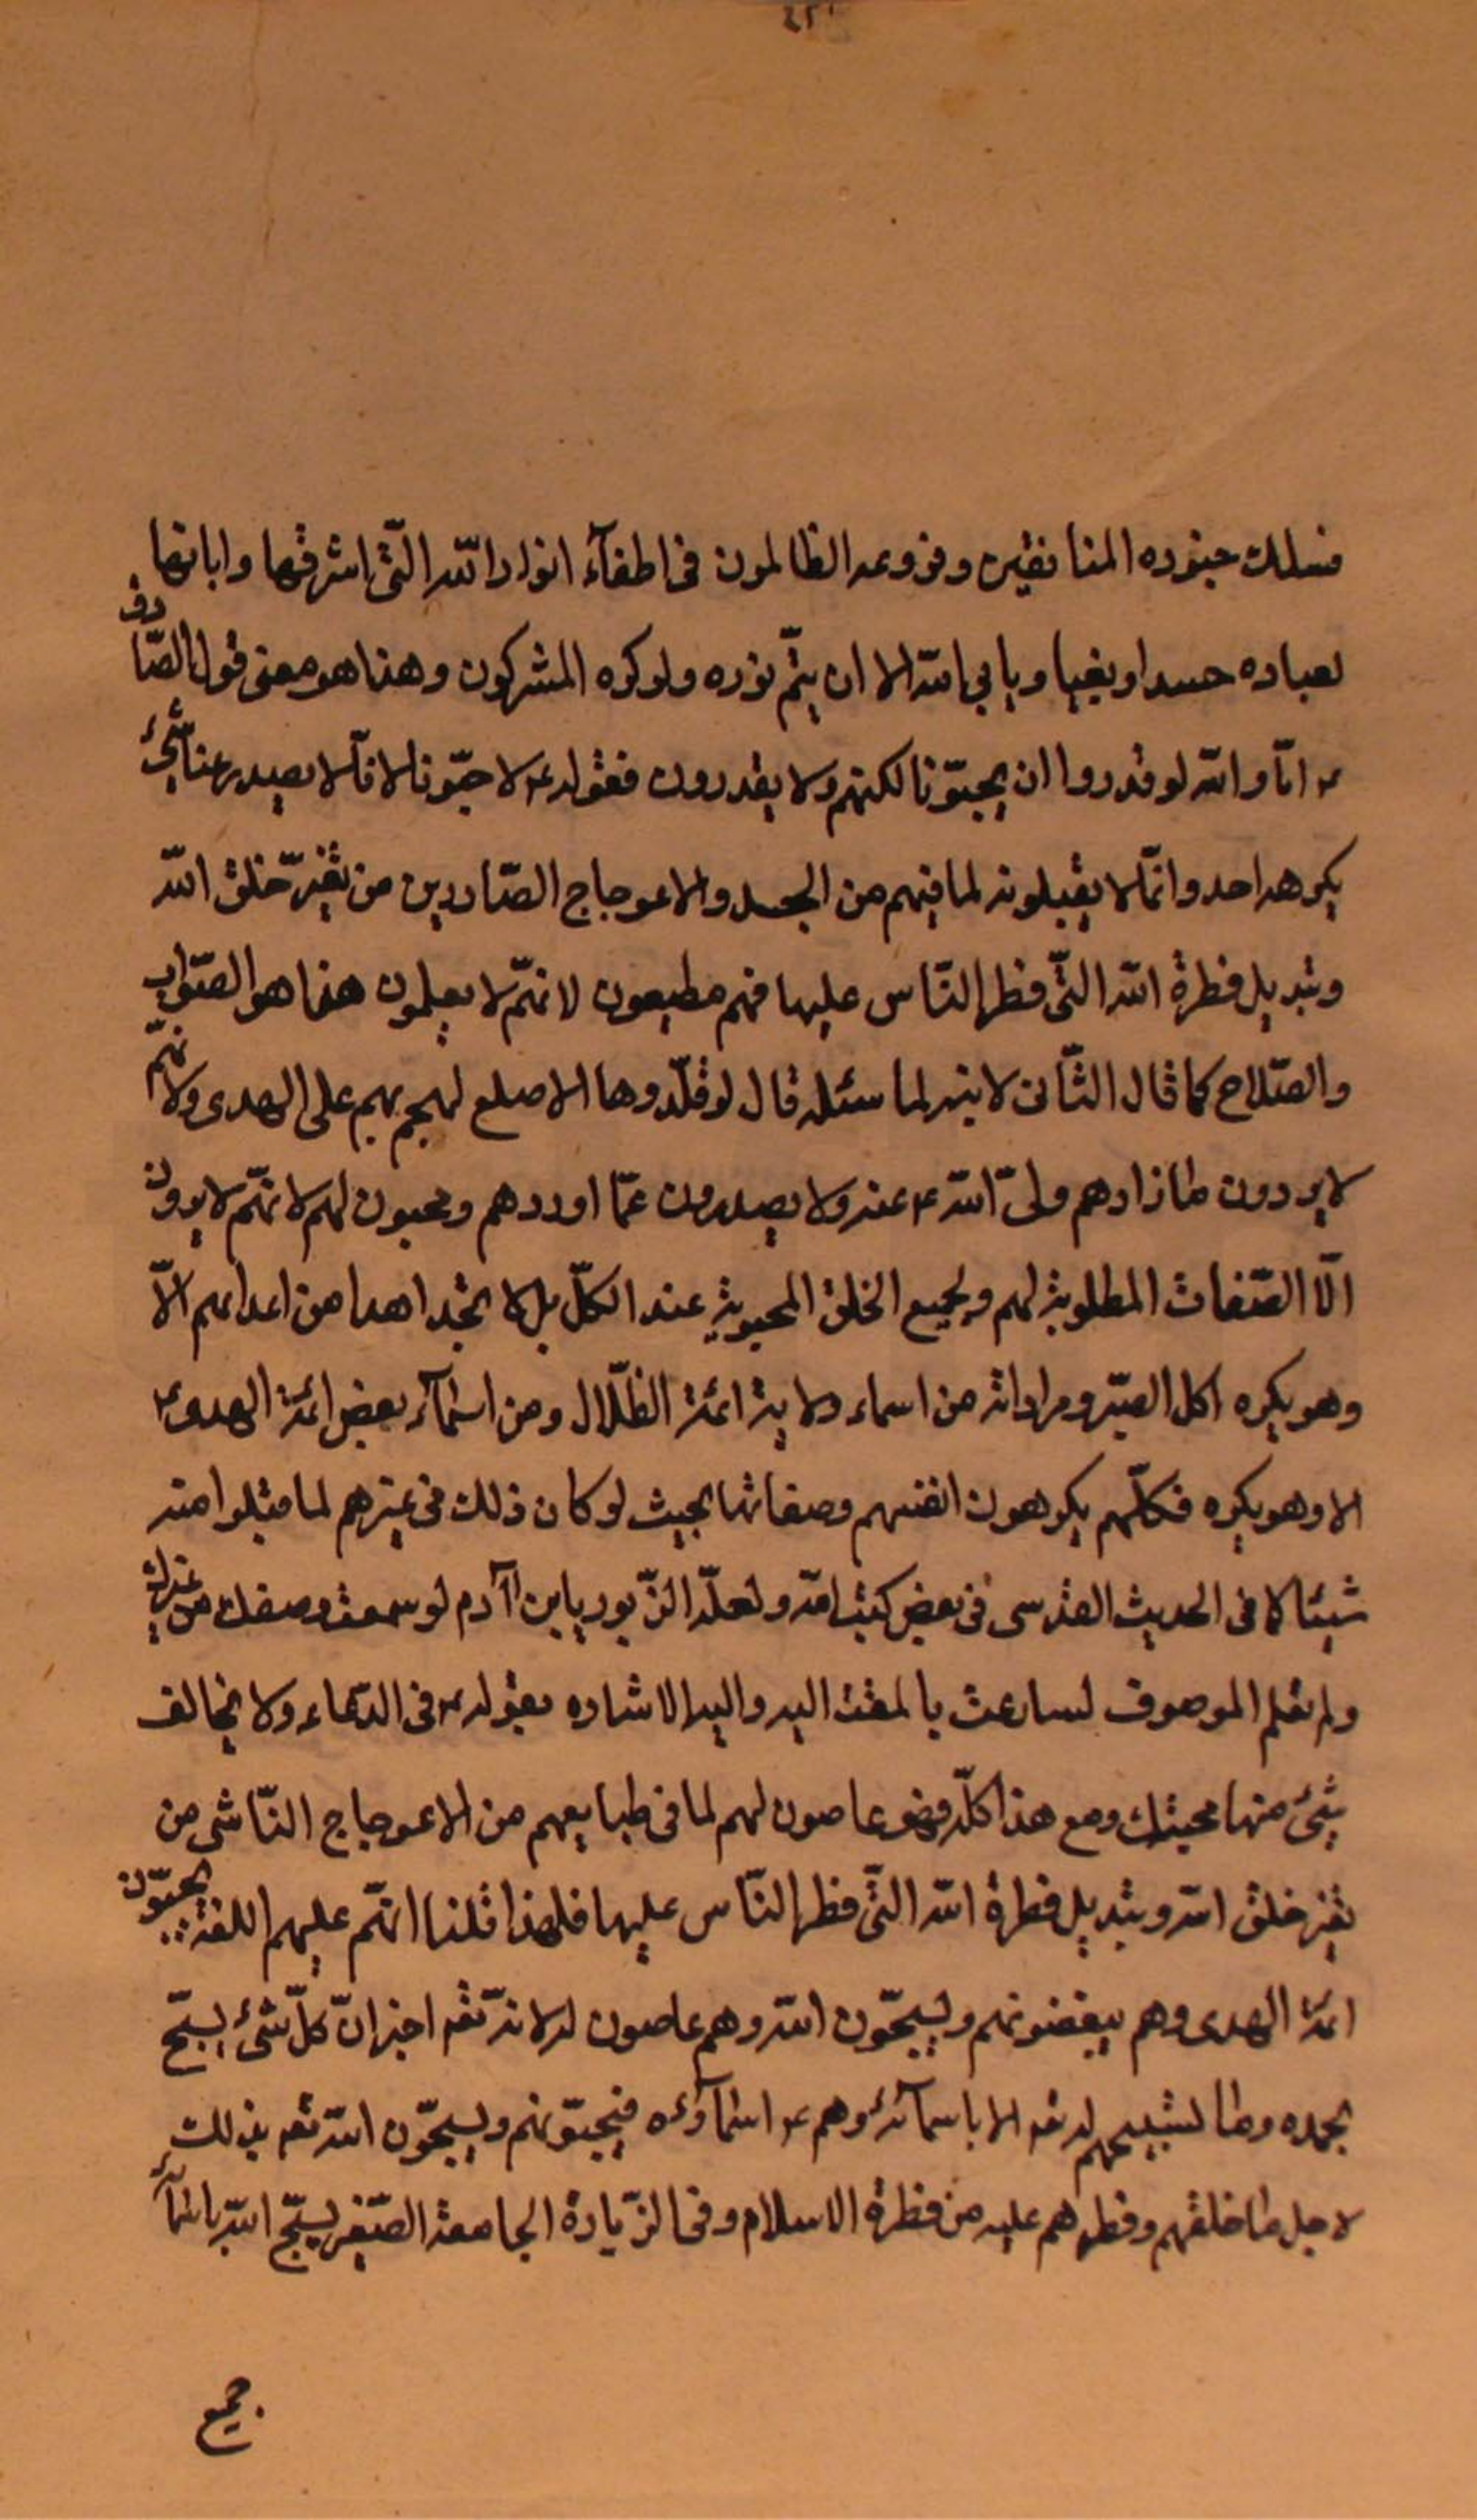 فسلك جنوده المنافقين وفروعه الظالمون فى اطفآء انوار الله الّتى اشرقها وابانها
لعباده حسدا وبغيا ويابى الله الا ان يتمّ نوره ولو كره المشركون وهذا هو معنى قول الصّادق
ع انّا والله لو قدروا ان يحبّونا لكنّهم لا يقدرون فقوله ع لاحبّونا لانّا لا يصدر عنا شئ
يكرهه احد وانّما لا يقبلونه لما فيهم من الجسد والاعوجاج الصّادرين من تغيّر خلق الله
وتبديل فطرة الله الّتى فطر النّاس عليها فهم مطيعون لانهّم لا يعلمون هذا هو الصّواب
والصّلاح كما قال الثّانى لابنه لما سئله قال لو قلّدوها الاصلع لهجم بهم على الهدى ولانهّم
لا يردون ما زادهم ولىّ الله ع عنه ولا يصدرون عمّا اوردهم ومحبون لهم لانهّم لا يرون
الّا الصّفات المطلوبة لهم ولجميع الخلق المحبوبة عند الكلّ بل لا تجد احدا من اعدائهم الّا
وهو يكره اكل الصبّر ومراداته من اسماء ولاية ائمّة الظّلال ومن اسمآء بعض ائمّة الهدى ع
الا وهو يكره فكلّهم يكرهون انفسهم وصفاتها بحيث لو كان ذلك فى غيرهم لما قبلوا منه
شيئا كما فى الحديث القدسى فى بعض كتب الله ولعلّه الزّبور يابن اآدم لو سمعت وصفك من غيرك
ولم تعلم الموصوف لسارعت بالمقت اليه واليه الاشاره بقوله ع فى الدّعاء ولا يخالف
شئ منها محبتك ومع هذا كلّه فهو عاصون لهم لما فى طبايعهم من الاعوجاج النّاشى من
تغير خلق الله وتبديل فطرة الله الّتى فطر النّاس عليها فلهذا قلنا انهّم عليهم اللعنة يحبّون
ائمّة الهدى وهم يبغضونهم ويسبحّون الله وهم عاصون له لانّه تعه اخبر انّ كلّ شئ يسبّح
بحمده وما تسبيحهم له تعه الا باسمآئه وهم ع اسمآؤه فيحبّونهم ويسبحّون الله تعه بذلك
لاجل ما خلقهم وفطرهم عليه من فطرة الاسلام وفى الزّيارة الجامعة الصّغيرة يسبّح الله باسمآئه
جميع